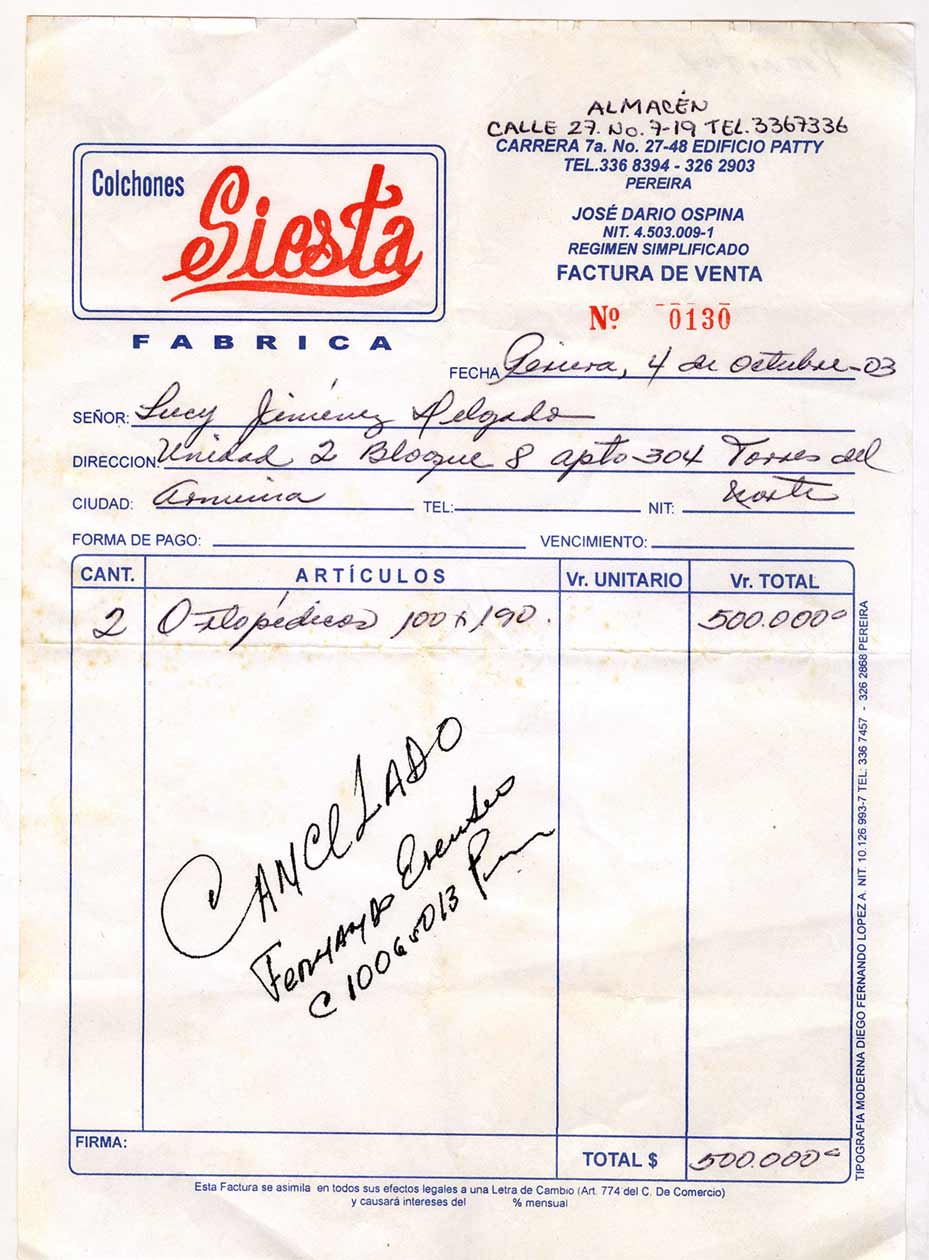 ALMACÉN
CALLE 27. No. 7-19 TEL. 3367336
CARRERA 7a. No. 27-48 EDIFICIO PATTY
TEL.336 8394 - 326 2903
PEREIRA
JOSÉ DARIO OSPINA
NIT. 4.503.009-1
REGIMEN SIMPLIFICADO
FACTURA DE VENTA
Nº 0130
Colchones
Siesta
FABRICA
FECHA Pereira, 4 de Octubre-03
SEÑOR: Lucy Jiménez Delgado
DIRECCION: Unidad 2 Bloque 8 apto 304 Torres del
CIUDAD: Armenia TEL: NIT: Norte
FORMA DE PAGO: VENCIMIENTO:
CANT. ARTÍCULOS Vr. UNITARIO Vr. TOTAL
2 Ortopédicos 100 x 190. 500.000
CANCELADO
Fernando
C 10065013
FIRMA:
TOTAL $ 500.000
Esta Factura se asimila en todos sus efectos legales a una Letra de Cambio (Art. 774 del C. De Comercio)
y causará intereses del % mensual
TIPOGRAFIA MODERNA DIEGO FERNANDO LOPEZ A. NIT. 10.126.993-7 TEL: 336 7457 - 326 2868 PEREIRA